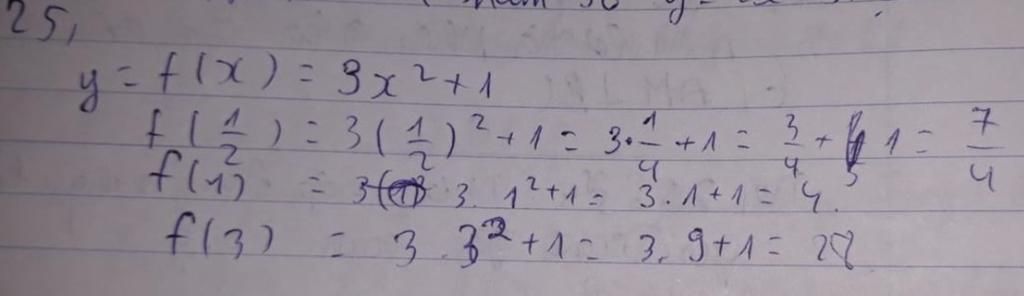 25,
y = f(x) = 3x² + 1
f(1/2) = 3(1/2)² + 1 = 3·1/4 + 1 = 3/4 + 1 = 7/4
f(1) = 3. 1² + 1 = 3.1 + 1 = 4.
f(3) = 3. 3² + 1 = 3. 9 + 1 = 28